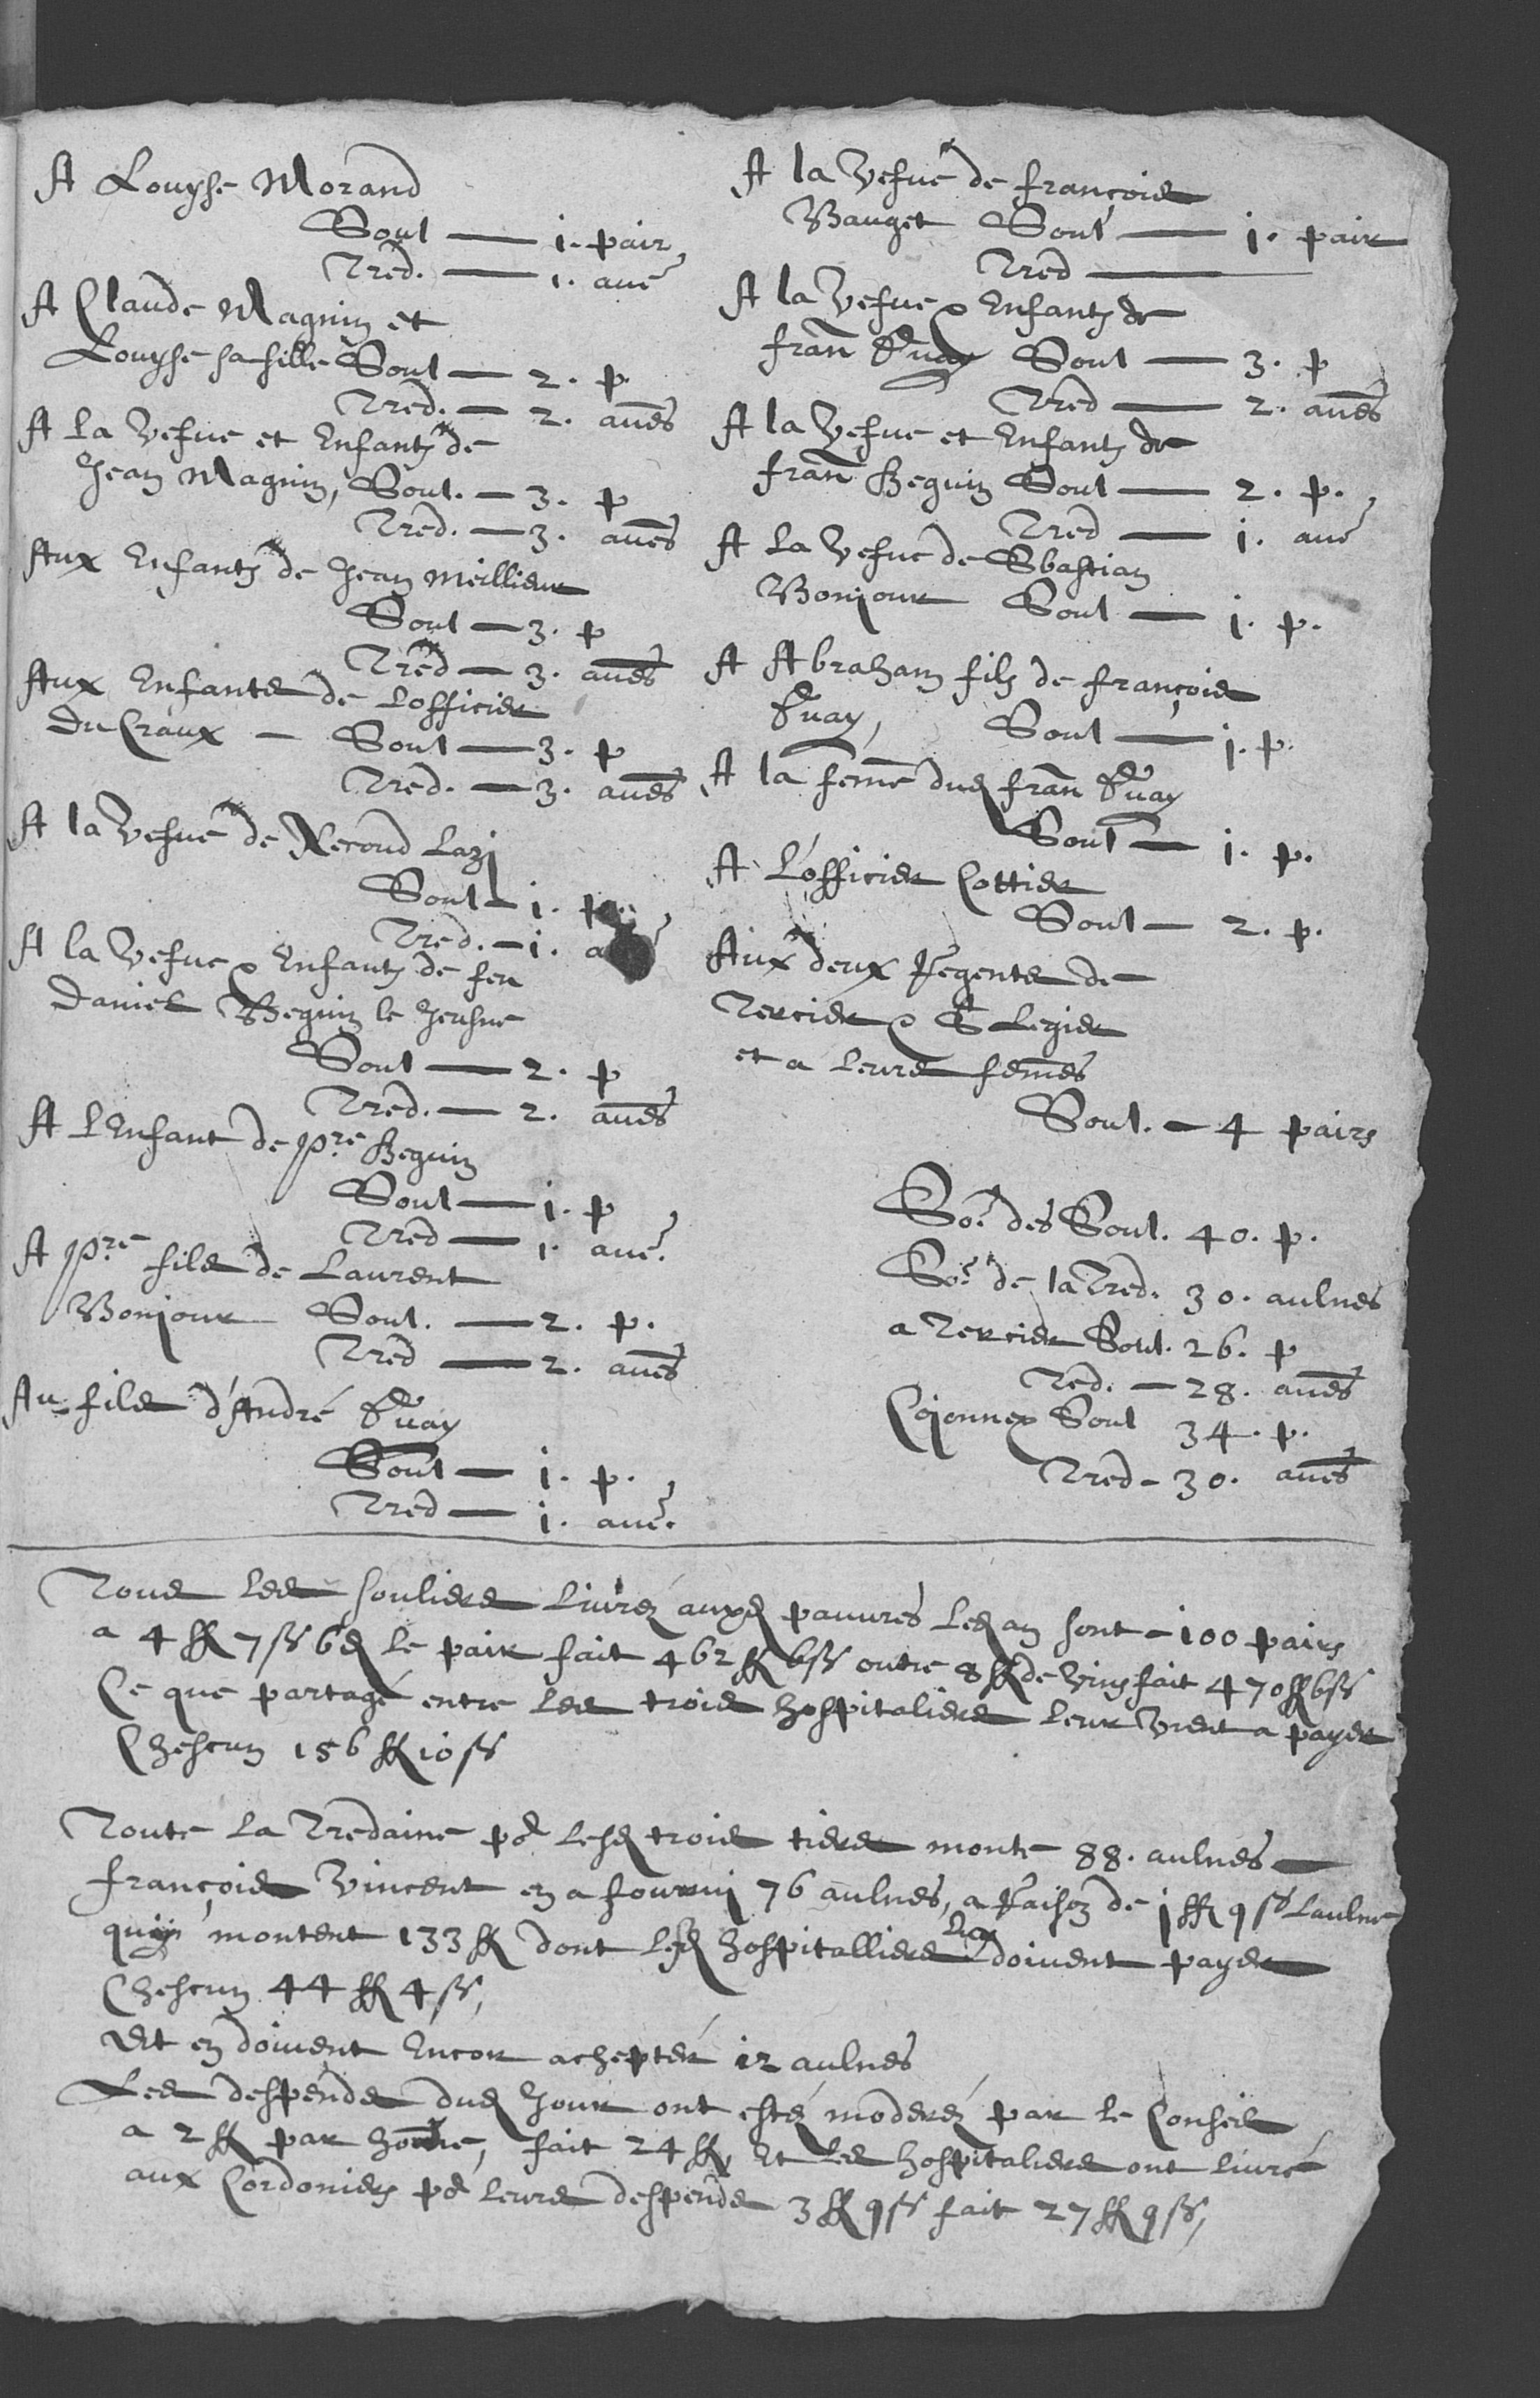 A Louyse Morand
Soul — 1. pair
Tred. — 1. aue
A Claude Magnin et
Louyse sa fille Soul — 2. p.
Tred. — 2. aues
A la Vefue et Enfants de
Jean Magnin, Soul. — 3. p
Tred. — 3. aues
Aux Enfants de Jean Meillieur
Soul — 3. p
Tred — 3. aues
Aux Enfants de Lofficier
Du Craux — Soul — 3. p
Tred. — 3. aues
A la Vefue de
Soul — 1. p
Tred. — 1.
A la Vefue & Enfants de feu
Daniel Beguin le Jeusne
Soul — 2. p
Tred. — 2. aues
A LEnfant de Pre Beguin
Soul — 1. p
Tred — 1. aue.
A Pre fils de Laurent
Bonjour Soul. — 2. p.
Tred — 2. aues
Au fils d'André
Soul — 1. p.
Tred — 1. aue.
A la Vefue de François
Bauget Soul — 1. pair
Tred —
A la Vefue & Enfants de
Fran Soul — 3. p
Tred — 2. aues
A la Vefue et Enfants de
Fran Beguin Soul — 2. p.
Tred — 1. aue
A la Vefue de Sbastian
Bonjour Soul — 1. p.
A Abraham fils de François
Soul — 1. p.
A la feme dud Fran
Soul — 1. p.
A L'officier Cottier
Soul — 2. p.
Aux deux Regents de
Tercier & St Legier
et a leurs femes
Soul. — 4 pairs
So.e des Soul. 40. p.
So.e de la Tred. 30. aulnes
a Tercier Soul. 26. p
Tred. — 28. aues
Cojonnex Soul 34. p.
Tred — 30. aues
Tous les souliers livrez auxd pauures led an sont — 100 pairs
a 4 ff 7 ss 6 d le pair fait 462 ff 6 ss outre 8 ff de vins fait 470 ff 6 ss
Ce que partagé entre les trois hospitaliers leur vient a payer
Chescun 156 ff 10 ss
Toute la Tredaine pr lesd trois tiers monte 88. aulnes —
François Vincent en a fourni 76 aulnes, a raison de 1 ff 9 ss laulne
qui montent 133 ff dont lesd hospitalliers doivent payer
Chescun 44 ff 4 ss,
Et en doivent Encor achepter 12 aulnes
Les despends dud Jour ont esté moderez par le Conseil
a 2 ff par home, fait 24 ff, Et les hospitaliers ont livré
aux Cordoniers pr leurs despends 3 ff 9 ss fait 27 ff 9 ss,